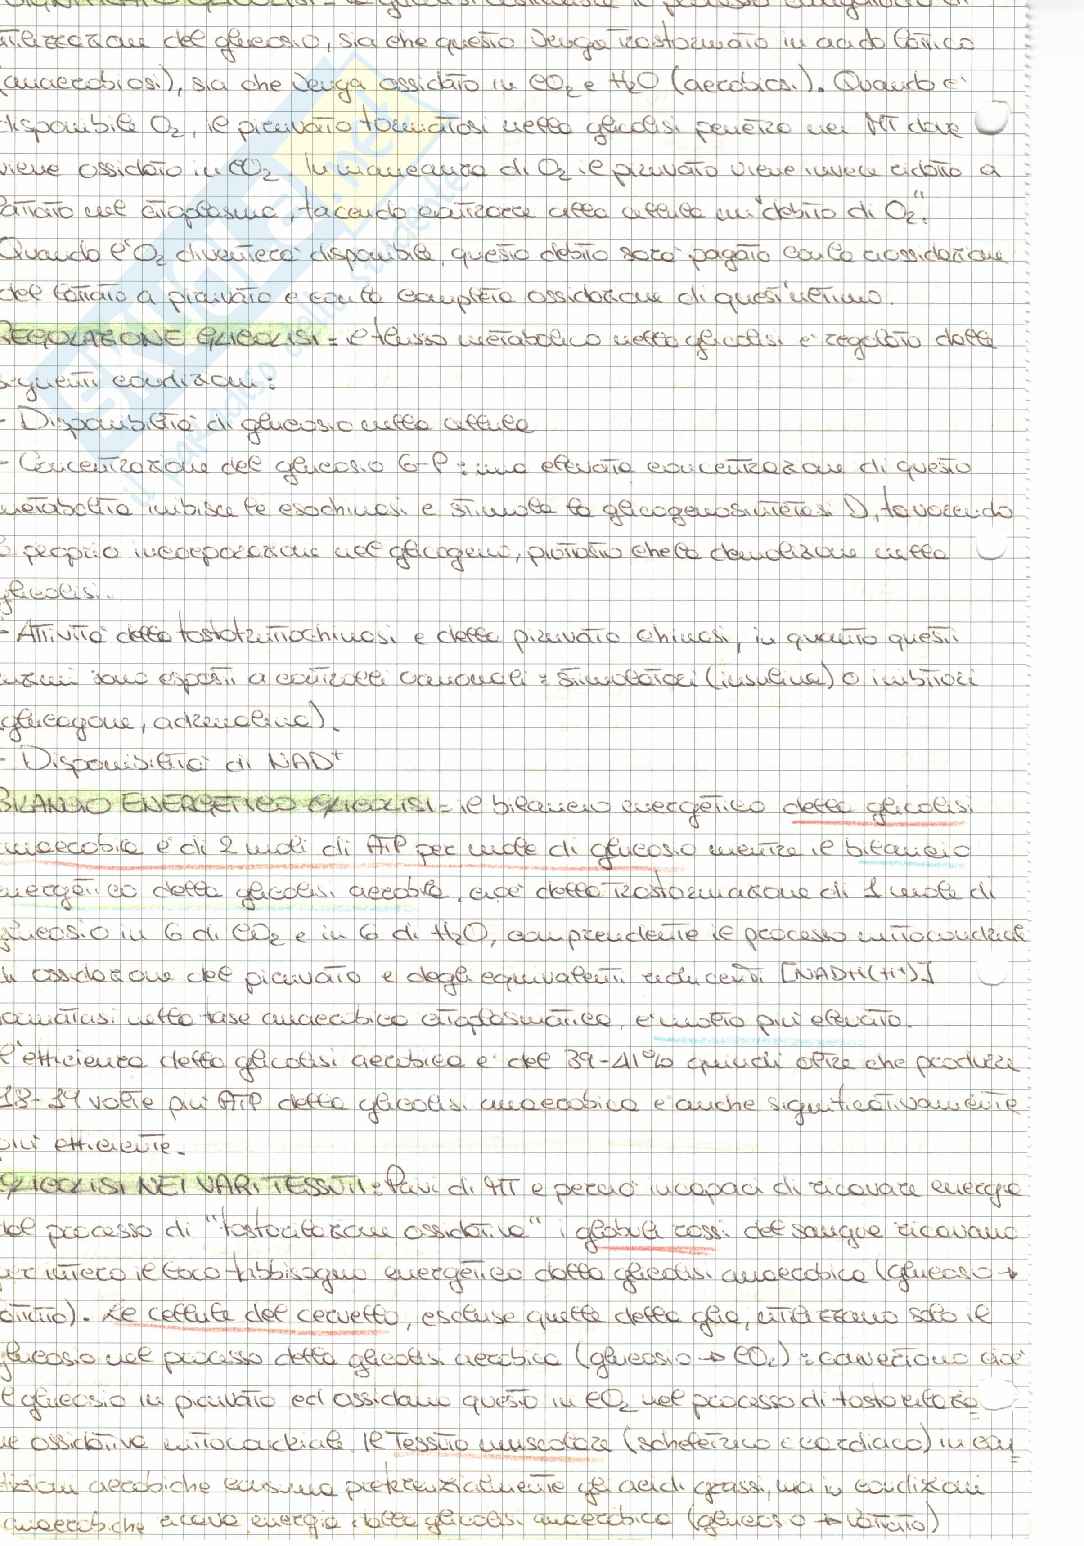 SIGNIFICATO GLICOLISI = la glicolisi costituisce il processo energetico di
utilizzazione del glucosio, sia che questo venga trasformato in acido lattico
(anaerobiosi), sia che venga ossidato in CO2 e H2O (aerobiosi). Quando è
disponibile O2, il piruvato formatosi nella glicolisi penetra nei MT dove
viene ossidato in CO2. In mancanza di O2 il piruvato viene invece ridotto a
lattato nel citoplasma, facendo contrarre alla cellula un "debito di O2".
Quando l'O2 diventerà disponibile, questo debito sarà pagato con la riossidazione
del lattato a piruvato e con la completa ossidazione di quest'ultimo.
REGOLAZIONE GLICOLISI = il flusso metabolico nella glicolisi è regolato dalle
seguenti condizioni:
- Disponibilità di glucosio nelle cellule
- Concentrazione del glucosio 6-P: una elevata concentrazione di questo
metabolita inibisce le esochinasi e stimola la glicogenosintetasi D, favorendo
la propria incorporazione nel glicogeno, piuttosto che la demolizione nella
glicolisi.
- Attività della fosfofruttochinasi e della piruvato chinasi, in quanto questi
enzimi sono esposti a controlli ormonali: stimolatori (insulina) o inibitori
(glucagone, adrenalina).
- Disponibilità di NAD+
BILANCIO ENERGETICO GLICOLISI = il bilancio energetico della glicolisi
anaerobica è di 2 moli di ATP per mole di glucosio mentre il bilancio
energetico della glicolisi aerobica, cioè della trasformazione di 1 mole di
glucosio in 6 di CO2 e in 6 di H2O, comprendente il processo mitocondriale
di ossidazione del piruvato e degli equivalenti riducenti [NADH(H+)]
formatasi nella fase anaerobica citoplasmatica, è molto più elevato.
L'efficienza della glicolisi aerobica è del 39-41% quindi oltre che produrre
18-19 volte più ATP della glicolisi anaerobica è anche significativamente
più efficiente.
GLICOLISI NEI VARI TESSUTI: Privi di MT e perciò incapaci di ricavare energia
dal processo di "fosforilazione ossidativa" i globuli rossi del sangue ricavano
per intero il loro fabbisogno energetico dalla glicolisi anaerobica (glucosio →
lattato). Le cellule del cervello, escluse quelle della glia, utilizzano solo il
glucosio nel processo della glicolisi aerobica (glucosio → CO2): convertono cioè
il glucosio in piruvato ed ossidano questo in CO2 nel processo di fosforilazio-
ne ossidativa mitocondriale. Il tessuto muscolare (scheletrico e cardiaco) in con-
dizioni aerobiche consuma preferenzialmente gli acidi grassi, ma in condizioni
anaerobiche ricava energia dalla glicolisi anaerobica (glucosio → lattato)